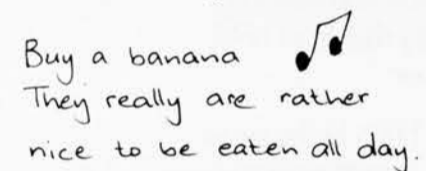 Buy a banana
They really are rather
nice to be eaten all day.